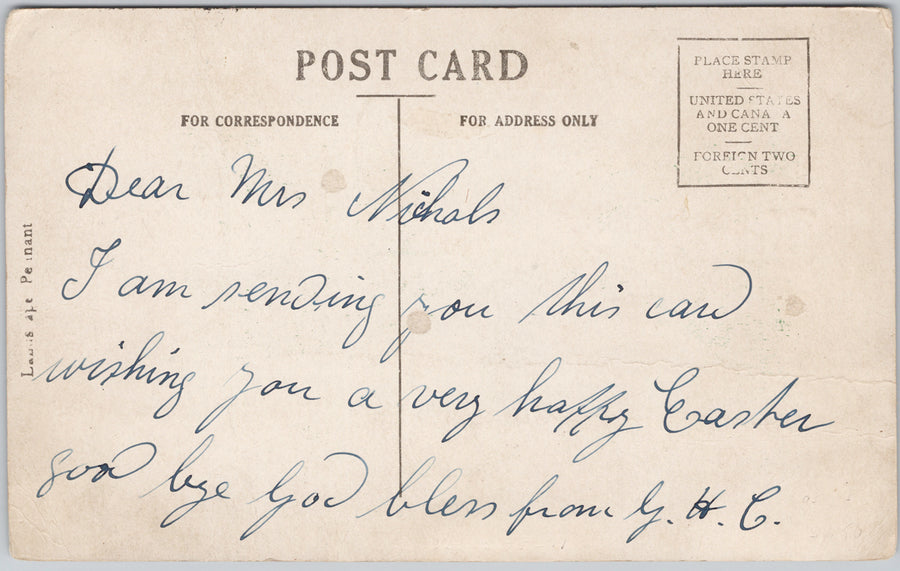 POST CARD
FOR CORRESPONDENCE
FOR ADDRESS ONLY
PLACE STAMP
HERE
UNITED STATES
AND CANA A
ONE CENT
FOREIGN TWO
CENTS
Dear Mrs Nichals
I am sending you this card
wishing you a very happy Easter
good bye God bless from G. H. C.
Pennant